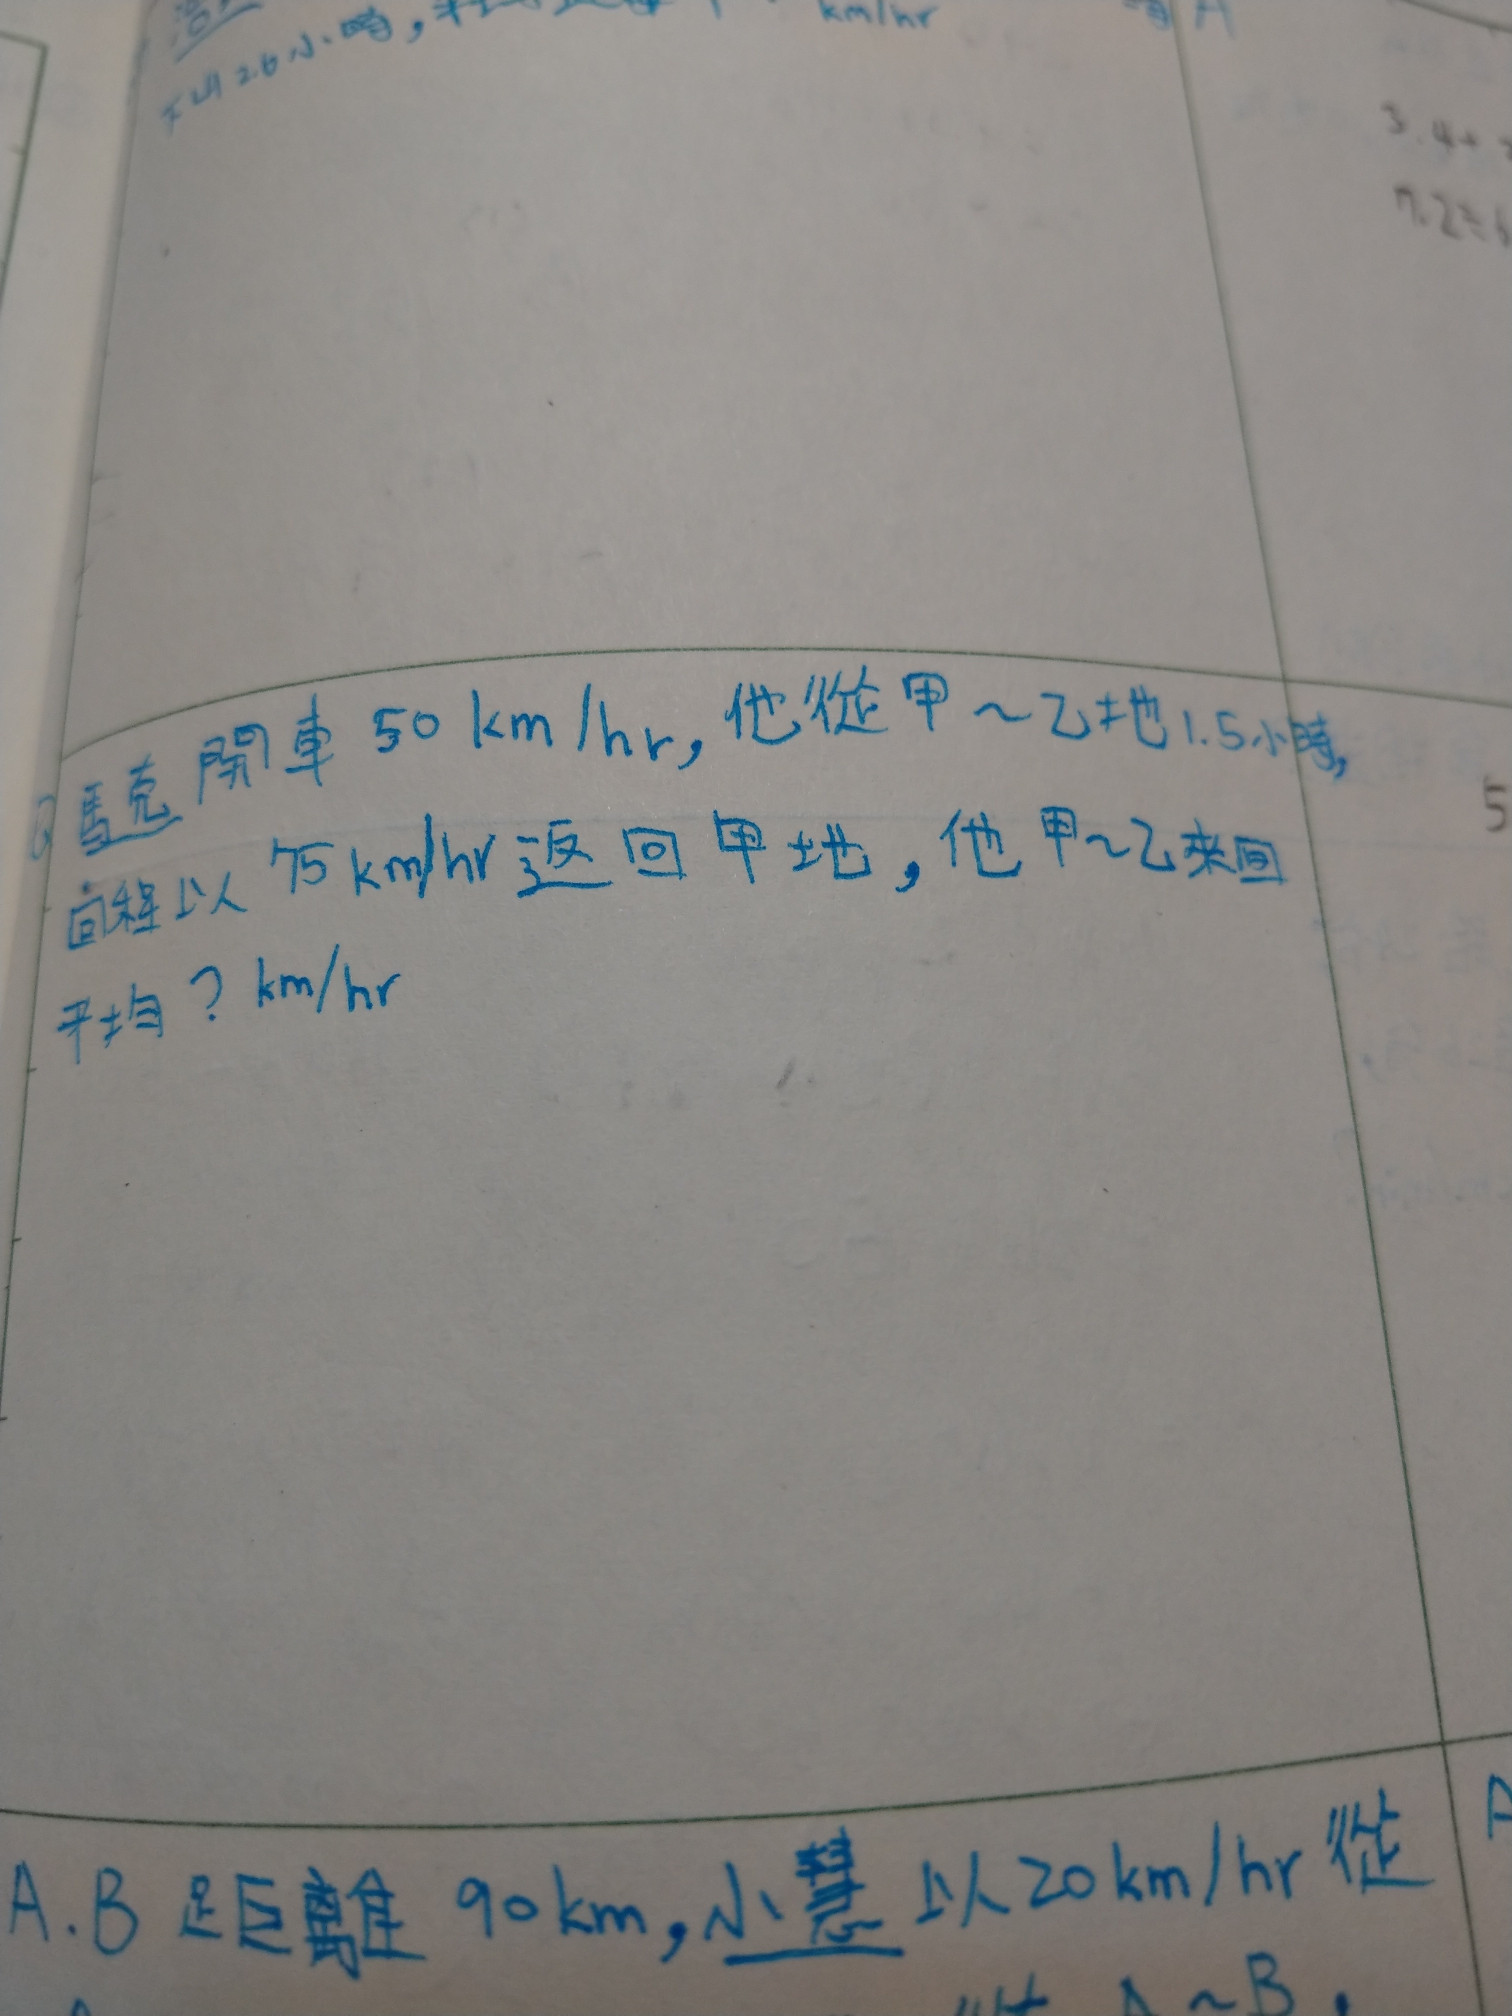 2.6小時,
km/hr
A
3.4+
7.2÷
馬克開車 50 km/hr, 他從甲~乙地1.5小時,
回程以 75 km/hr 返回甲地, 他甲~乙來回
平均? km/hr
5
A.B 距離 90 km, 小慧以20km/hr 從
從 A~B,